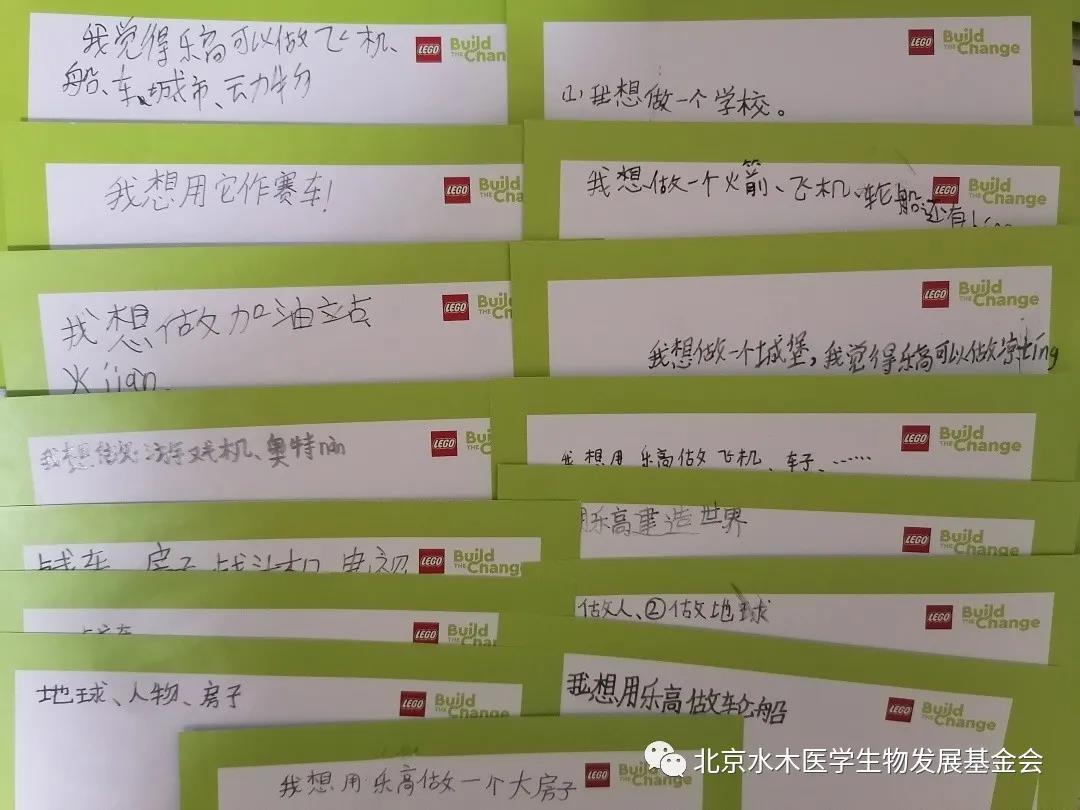 我觉得乐高可以做飞机、
船、车、城市、动物
LEGO Build THE Chan
我想用它作赛车!
LEGO Build THE Cha
我想做加油立占
火jian.
LEGO Build THE Ch
机、奥特
LEGO Bui THE C
战车 房子 战斗机 电视
LEGO Build THE Chang
LEGO Build THE Chan
地球、人物、房子
LEGO Build THE Change
(1)我想做一个学校。
LEGO Build THE Change
我想做一个火箭、飞机、轮船还有
LEGO Build THE Change
我想做一个城堡,我觉得乐高可以做
LEGO Build THE Change
我想用乐高做飞机、车子、……
LEGO Build THE Change
用乐高建造世界
LEGO Build THE Change
做人、②做地球
LEGO Build THE Change
我想用乐高做轮船
LEGO Build THE Change
我想用乐高做一个大房子
LEGO Build THE Chan
北京水木医学生物发展基金会